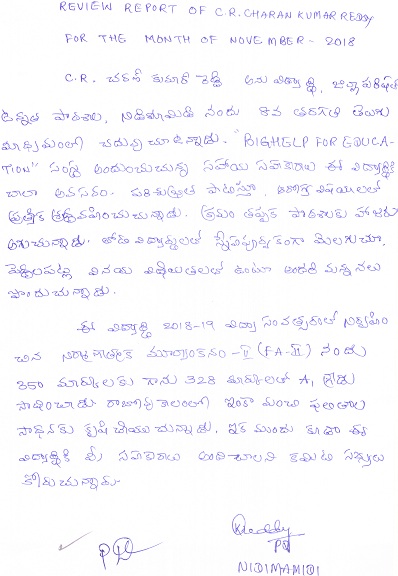 REVIEW REPORT OF C.R. CHARAN KUMAR REDDY
FOR THE MONTH OF NOVEMBER - 2018
C.R. చరణ్ కుమార్ రెడ్డి అను విద్యార్థి, జిల్లా పరిషత్
ఉన్నత పాఠశాల, నిడిమామిడి నందు 8వ తరగతి తెలుగు
మాధ్యమంలో చదువుచూ ఉన్నాడు. "BIGHELP FOR EDUCA-
TION" సంస్థ అందించుచున్న సహాయ సహకారాలు ఈ విద్యార్థికి
చాలా అవసరం. పరిశుభ్రత పాటిస్తూ, ఆరోగ్య విషయంలో
శ్రద్ధ వహించుచున్నాడు. క్రమం తప్పక పాఠశాలకు హాజరు
అగుచున్నాడు. తోటి విద్యార్థులతో స్నేహపూర్వకంగా మెలగుచూ,
పెద్దలపట్ల వినయ విధేయతలతో ఉంటూ అందరి మన్ననలు
పొందుచున్నాడు.
ఈ విద్యార్థి 2018-19 విద్యా సంవత్సరంలో నిర్వహిం
చిన నిర్మాణాత్మక మూల్యాంకనం - II (FA-II) నందు
350 మార్కులకు గాను 328 మార్కులతో A1 గ్రేడు
సాధించాడు రాబోవు కాలంలో ఇంకా మంచి ఫలితాల
సాధనకు కృషి చేయుచున్నాడు. ఇక ముందు కూడా ఈ
విద్యార్థికి మీ సహకారాలు అందించాలని కమిటీ సభ్యులు
కోరుచున్నారు.
PD
NIDIMAMIDI